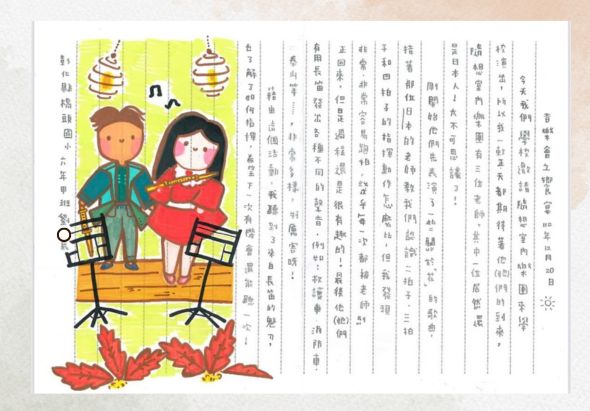 音樂會之饗宴 110年12月20日
今天我們學校邀請隨想室內樂團來學
校演出，所以我一整天都期待著他們的到來，
隨想室內樂團有三位老師，其中一位居然還
是日本人！太不可思議了！
剛開始他們先表演了一些關於「」的歌曲，
接著那位日本的老師教我們認識二拍子、三拍
子和四拍子的指揮動作怎麼比，但我發現
非常、非常容易跑拍，幾乎每一次都被老師糾
正回來，但是過程還是很有趣的！最後他(她)們
有用長笛發出各種不同的聲音，例如：救護車、消防車、
泰山等……，非常多樣，好厲害呀！
藉由這個活動，我聽到了來自長笛的魅力，
也了解了如何指揮，希望下一次有機會還能聽一次！
彰化縣橋頭國小 六年甲班 劉